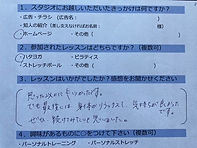 1. スタジオにお越しいただいたきっかけは何ですか?
・広告・チラシ(広告名 )
・知人の紹介(差し支えなければお名前 様)
・ホームページ ・その他(
2. 参加されたレッスンはどちらですか?(複数可)
・ハタヨガ ・ピラティス
・ストレッチポール ・その他(
3. レッスンはいかがでしたか?感想をお聞かせください
思った以上にきつかったです。
でも最後には身体がリラックスし、気持ちが良かったです。
ぜひ続けたいと思いました。
4. 興味があるものに○をつけて下さい(複数可)
・パーソナルトレーニング ・パーソナルストレッチ